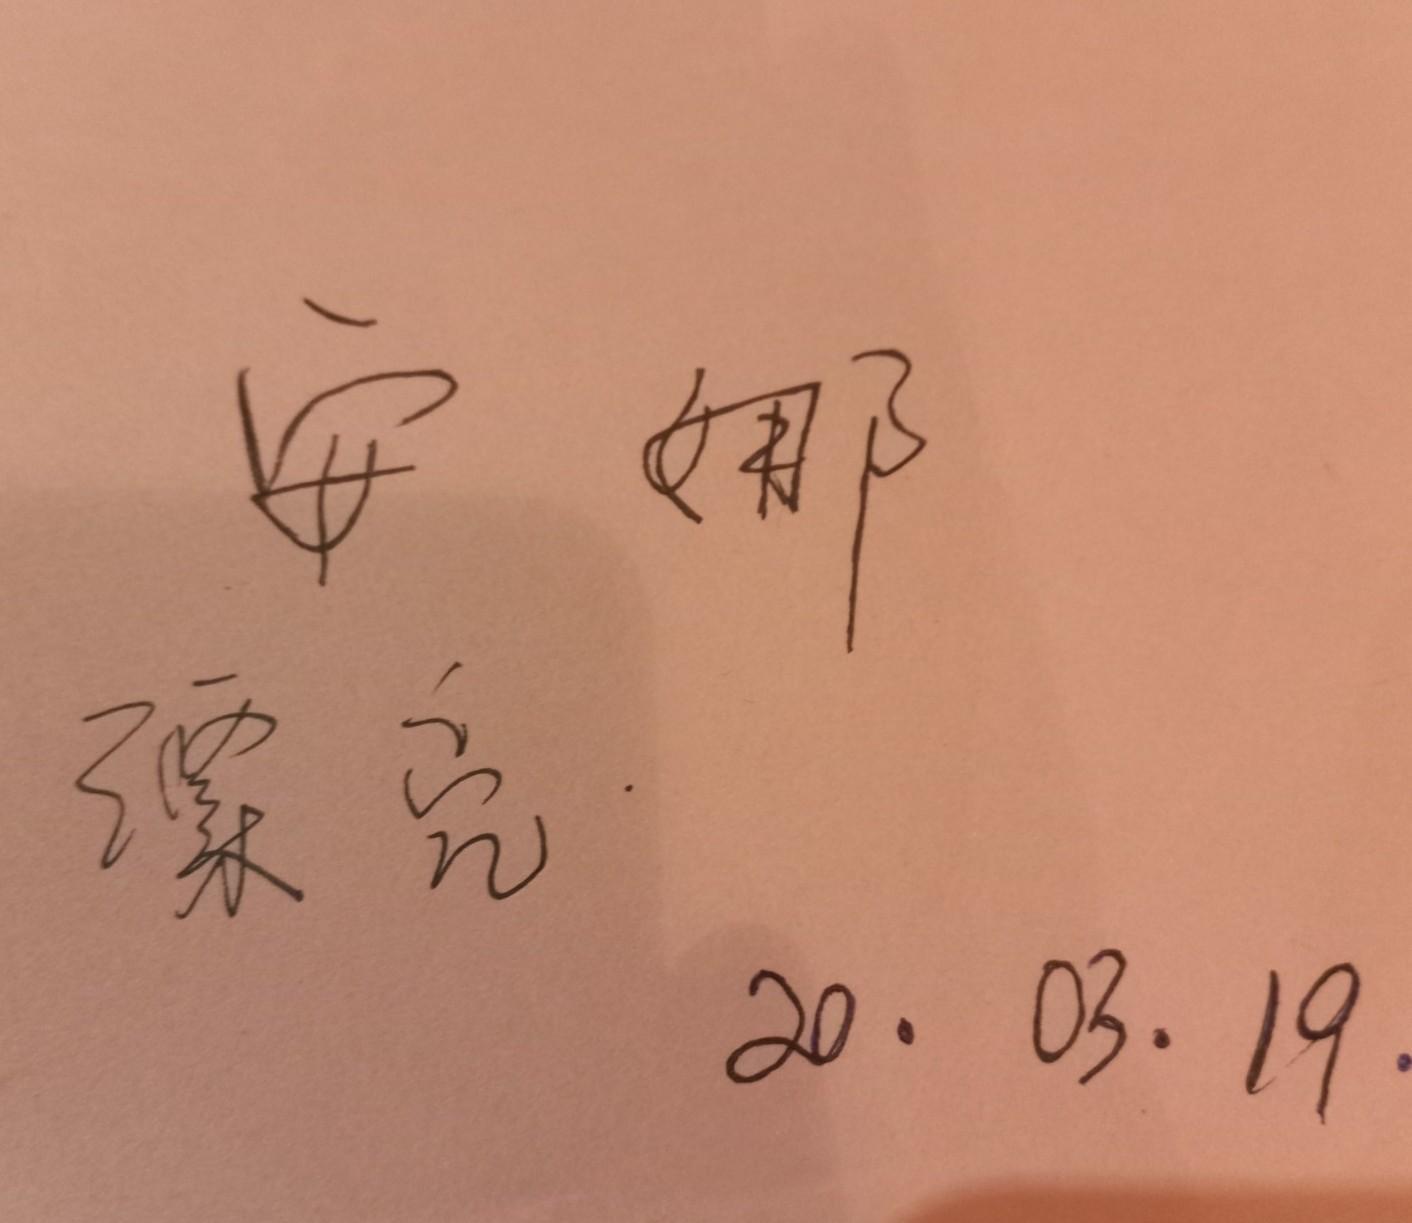 安娜
漂亮.
20. 03. 19.